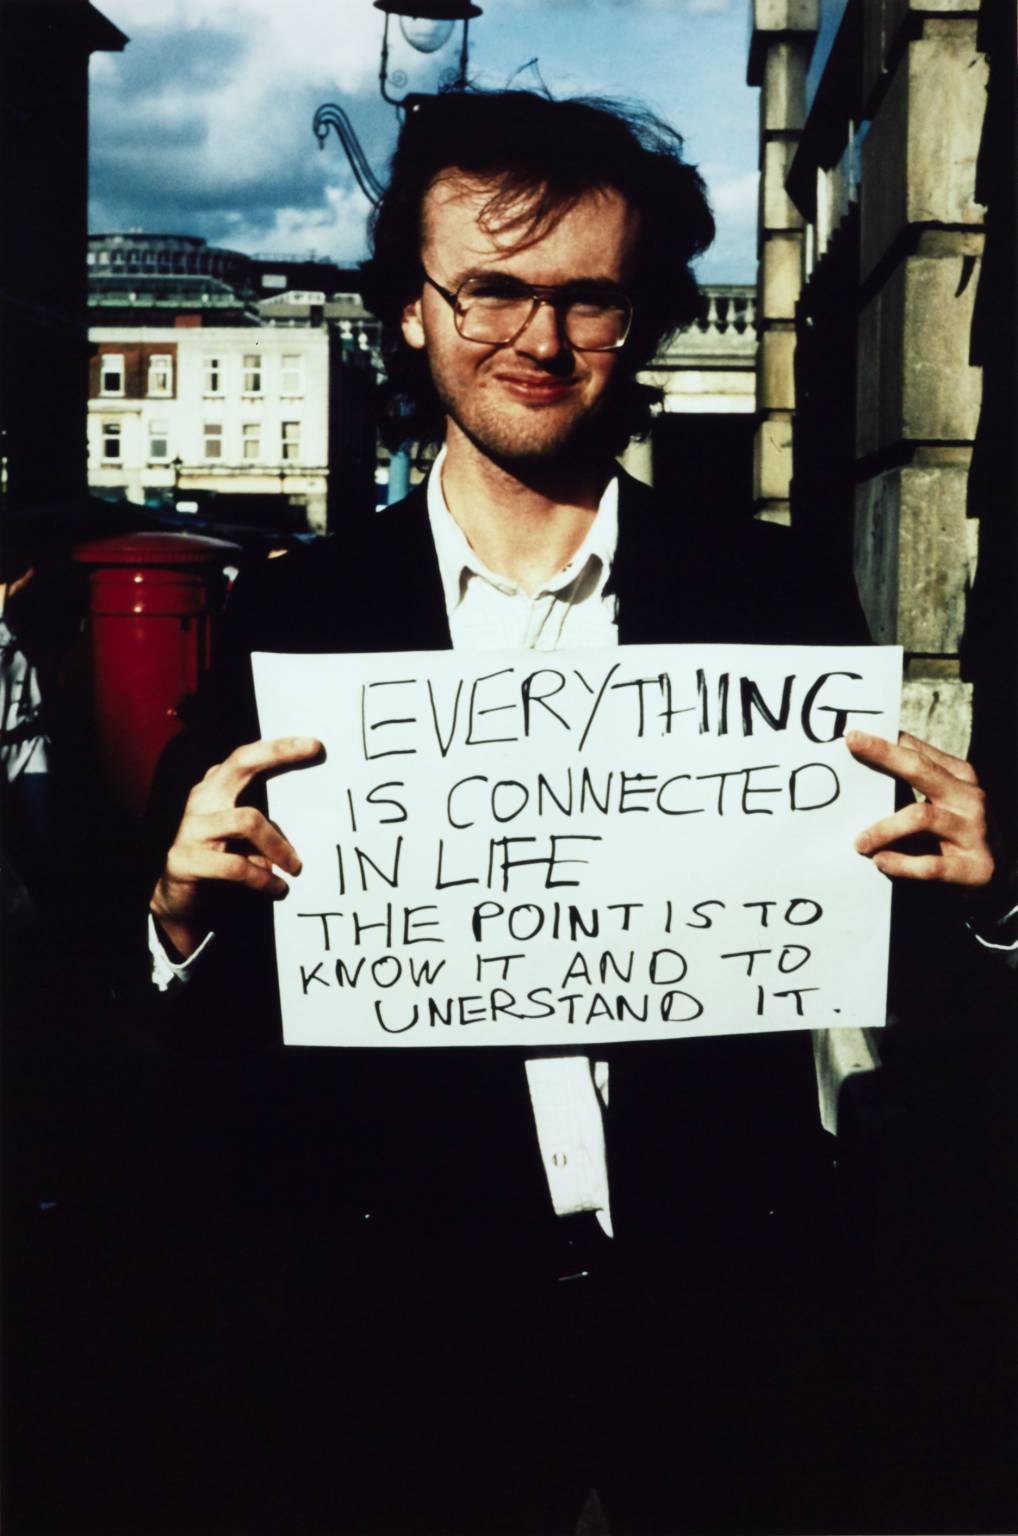 EVERYTHING
IS CONNECTED
IN LIFE
THE POINT IS TO
KNOW IT AND TO
UNERSTAND IT.